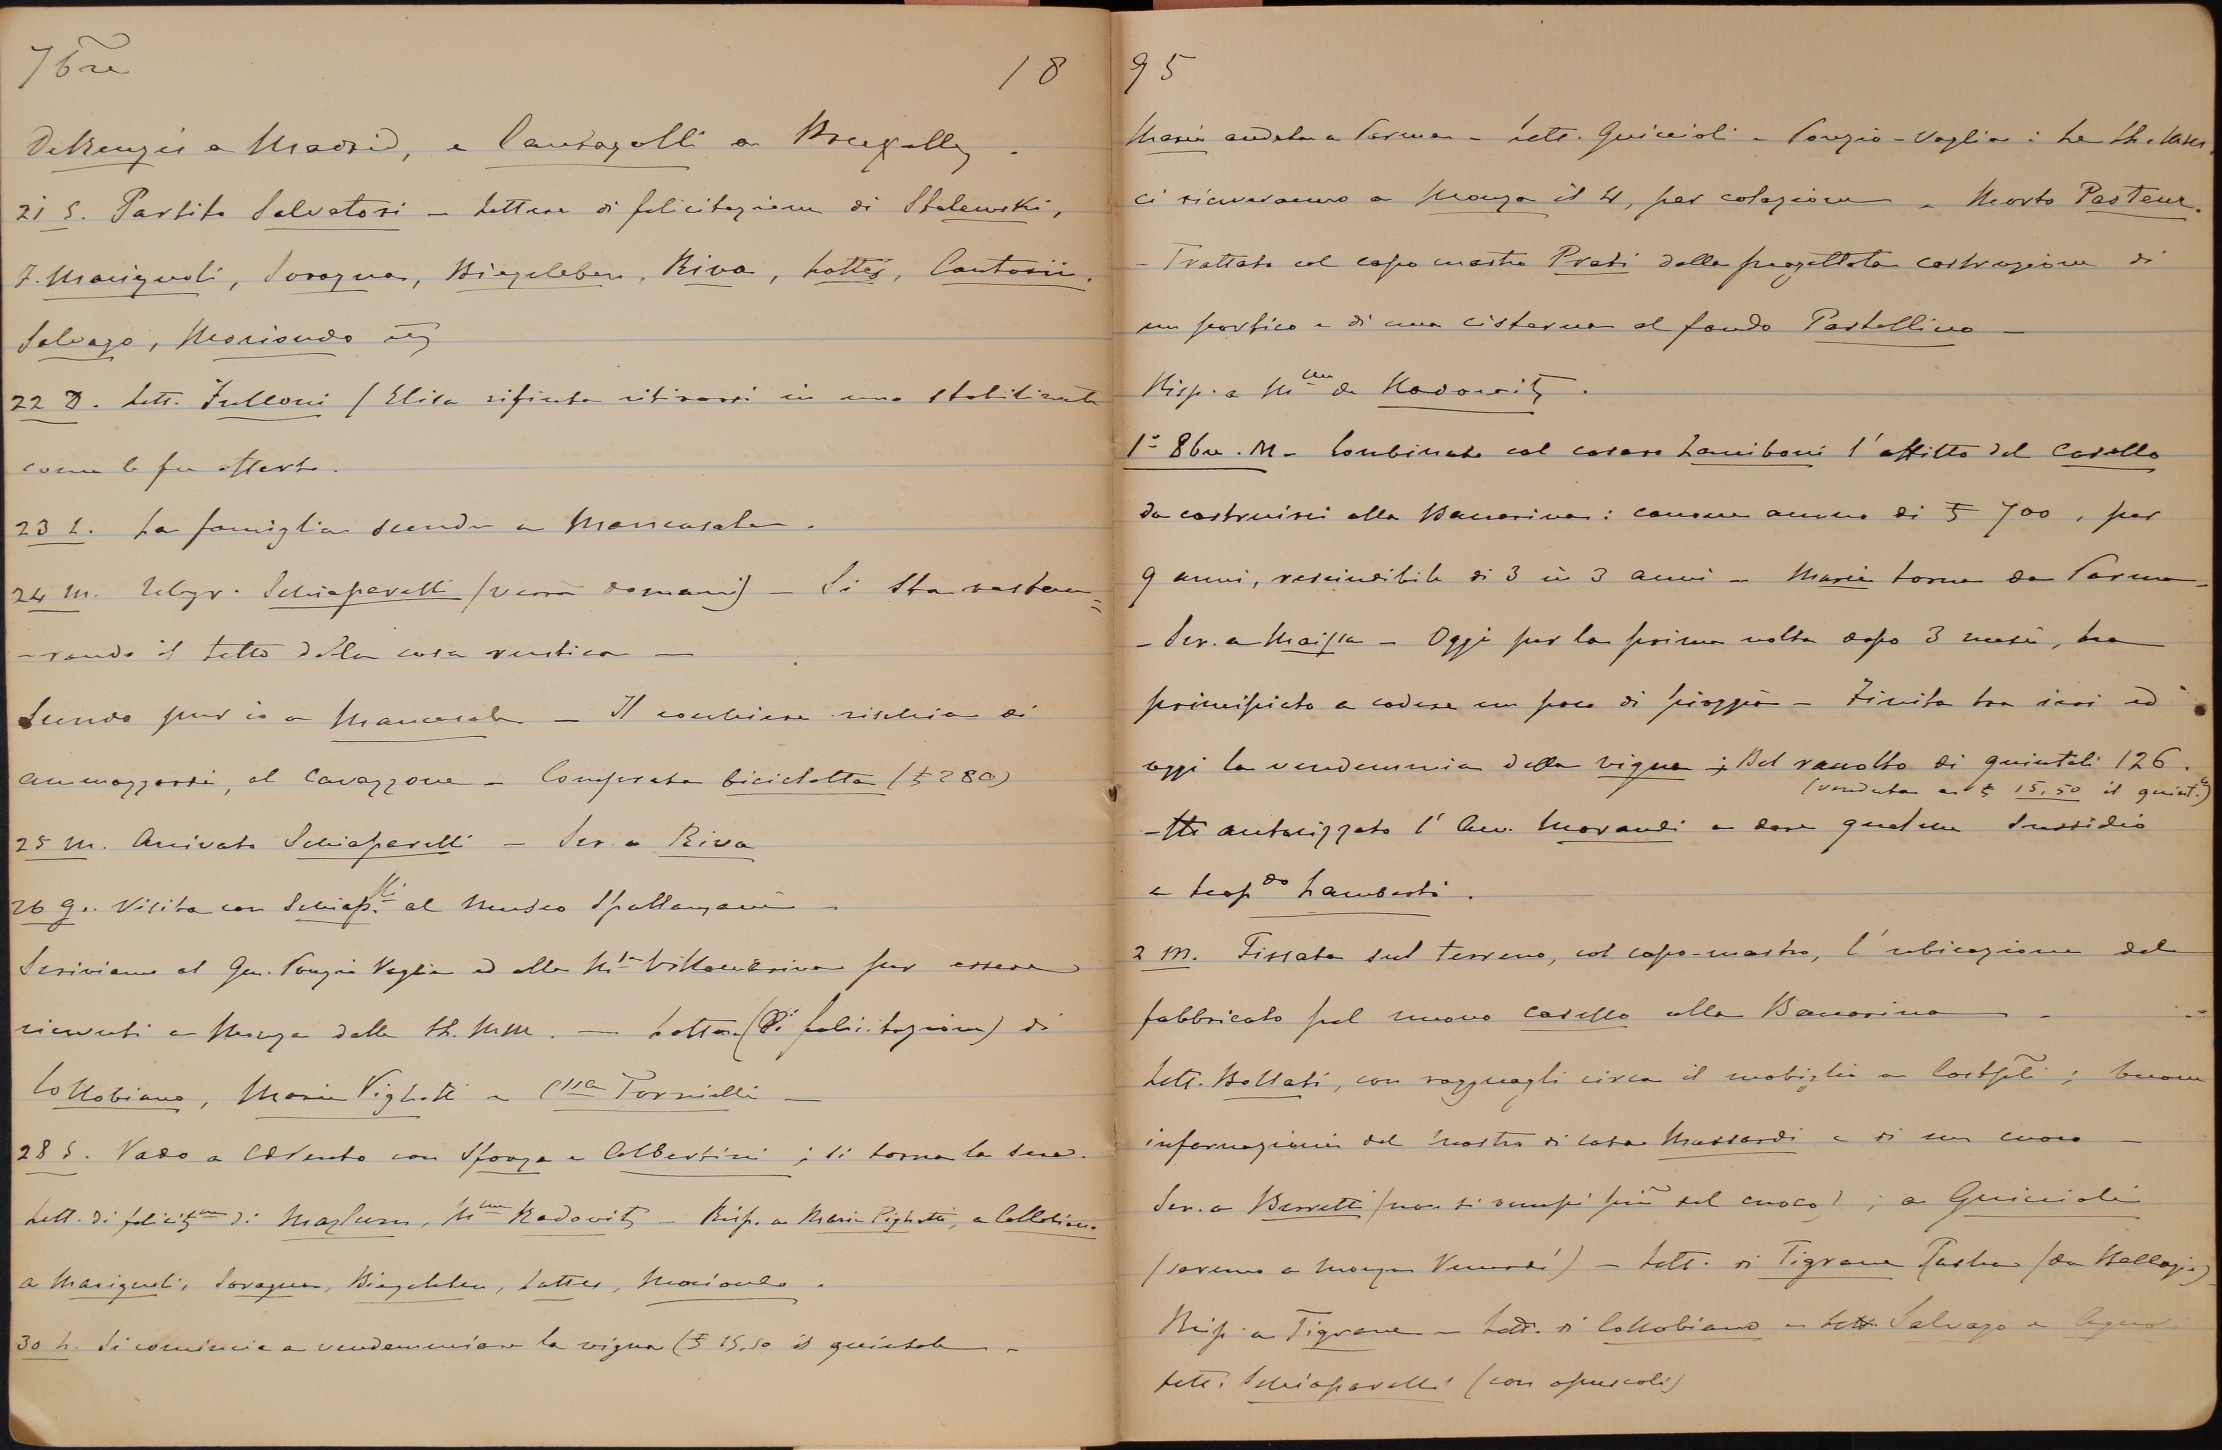 7bre 18
DeRenzis a Madrid, e Cantagalli a Bruxelles.
21 S. Partito Salvatori – Lettere di felicitazione di Stalewski,
F. Marignoli, Soragna, Biegeleben, Riva, Lattes, Cantoni,
Salvago, Moriondo
22 D. Lett. Fulloni (Elisa rifiuta ritirarsi in uno stabilimento
come le fu offerto.
23 L. La famiglia scende a Mancasale.
24 M. Telegr. Schiaparelli (verrà domani) – Si sta restau=
-rando il tetto della casa rustica –
Scendo pur io a Mancasale – Il cocchiere rischia di
ammazzarsi, al Cavazzone – Comprata bicicletta (₤ 280)
25 M. Arrivato Schiaparelli – Scr. a Riva
26 G. Visita con Schiap.lli al Museo Spallanzani –
Scriviamo al Gen. Ponzio Vaglia ed alla Msa Villamarina per essere
ricevuti a Monza dalle LL. MM. – Lettere (di felicitazione) di
Collobiano, Maria Pighetti e Cssa Tornielli –
28 S. Vado a Cerreto con Sforza e Albertini ; si torna la sera.
Lett. di felicitzne di Mazlum, Mme Radowitz – Risp. a Maria Pighetti, a Collobiano
a Marignoli, Soragna, Biegeleben, Lattes, Moriondo.
30 L. Si comincia a vendemmiare la vigna (₤ 15.50 il quintale –
95
Maria andata a Parma – Lett. Guiccioli e Ponzio-Vaglia : Le
ci riceveranno a Monza il 4, per colazione – Morto Pasteur.
– Trattato col capo mastro Prati della progettata costruzione di
un portico e di una cisterna al fondo Pastellino –
Risp. a Mme de Radowitz.
1° 8bre. M – Combinato col casaro Lamiboni l'affitto del Casello
da costruirsi alla Bavarina : canone annuo di ₤ 700, per
9 anni, rescindibile di 3 in 3 anni – Maria torna da Parma –
– Scr. a Maissa – Oggi per la prima volta dopo 3 mesi, ha
principiato a cadere un poco di pioggia – Finita tra ieri ed
oggi la vendemmia della vigna ; Bel raccolto di quintali 126.
(venduta a ₤ 15,50 il quint.le)
– Ho autorizzato l'Avv. Morandi a dare qualche sussidio
a Leop.do Lamberti.
2 M. Fissata sul terreno, col capo-mastro, l'ubicazione del
fabbricato pel nuovo casello alla Bavarina –
Lett. Bollati, con ragguagli circa il mobiglio a Costpli ; buone
informazioni del mastro di casa Massardi e di un cuoco –
Scr. a Berretti (non si occupi più del cuoco) ; a Guiccioli
(saremo a Monza Venerdì) – Lett. di Tigrane Pasha (da Bellagio)
Risp. a Tigrane – Lett. di Collobiano – Lett. Salvago e
Lett. Schiaparelli (con opuscoli)